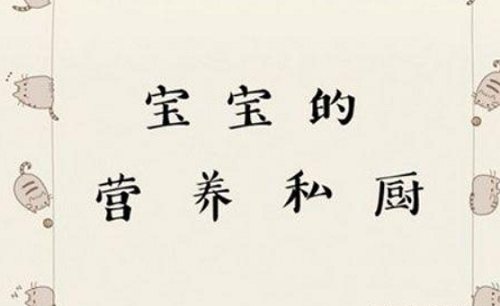 宝宝的
营养私厨